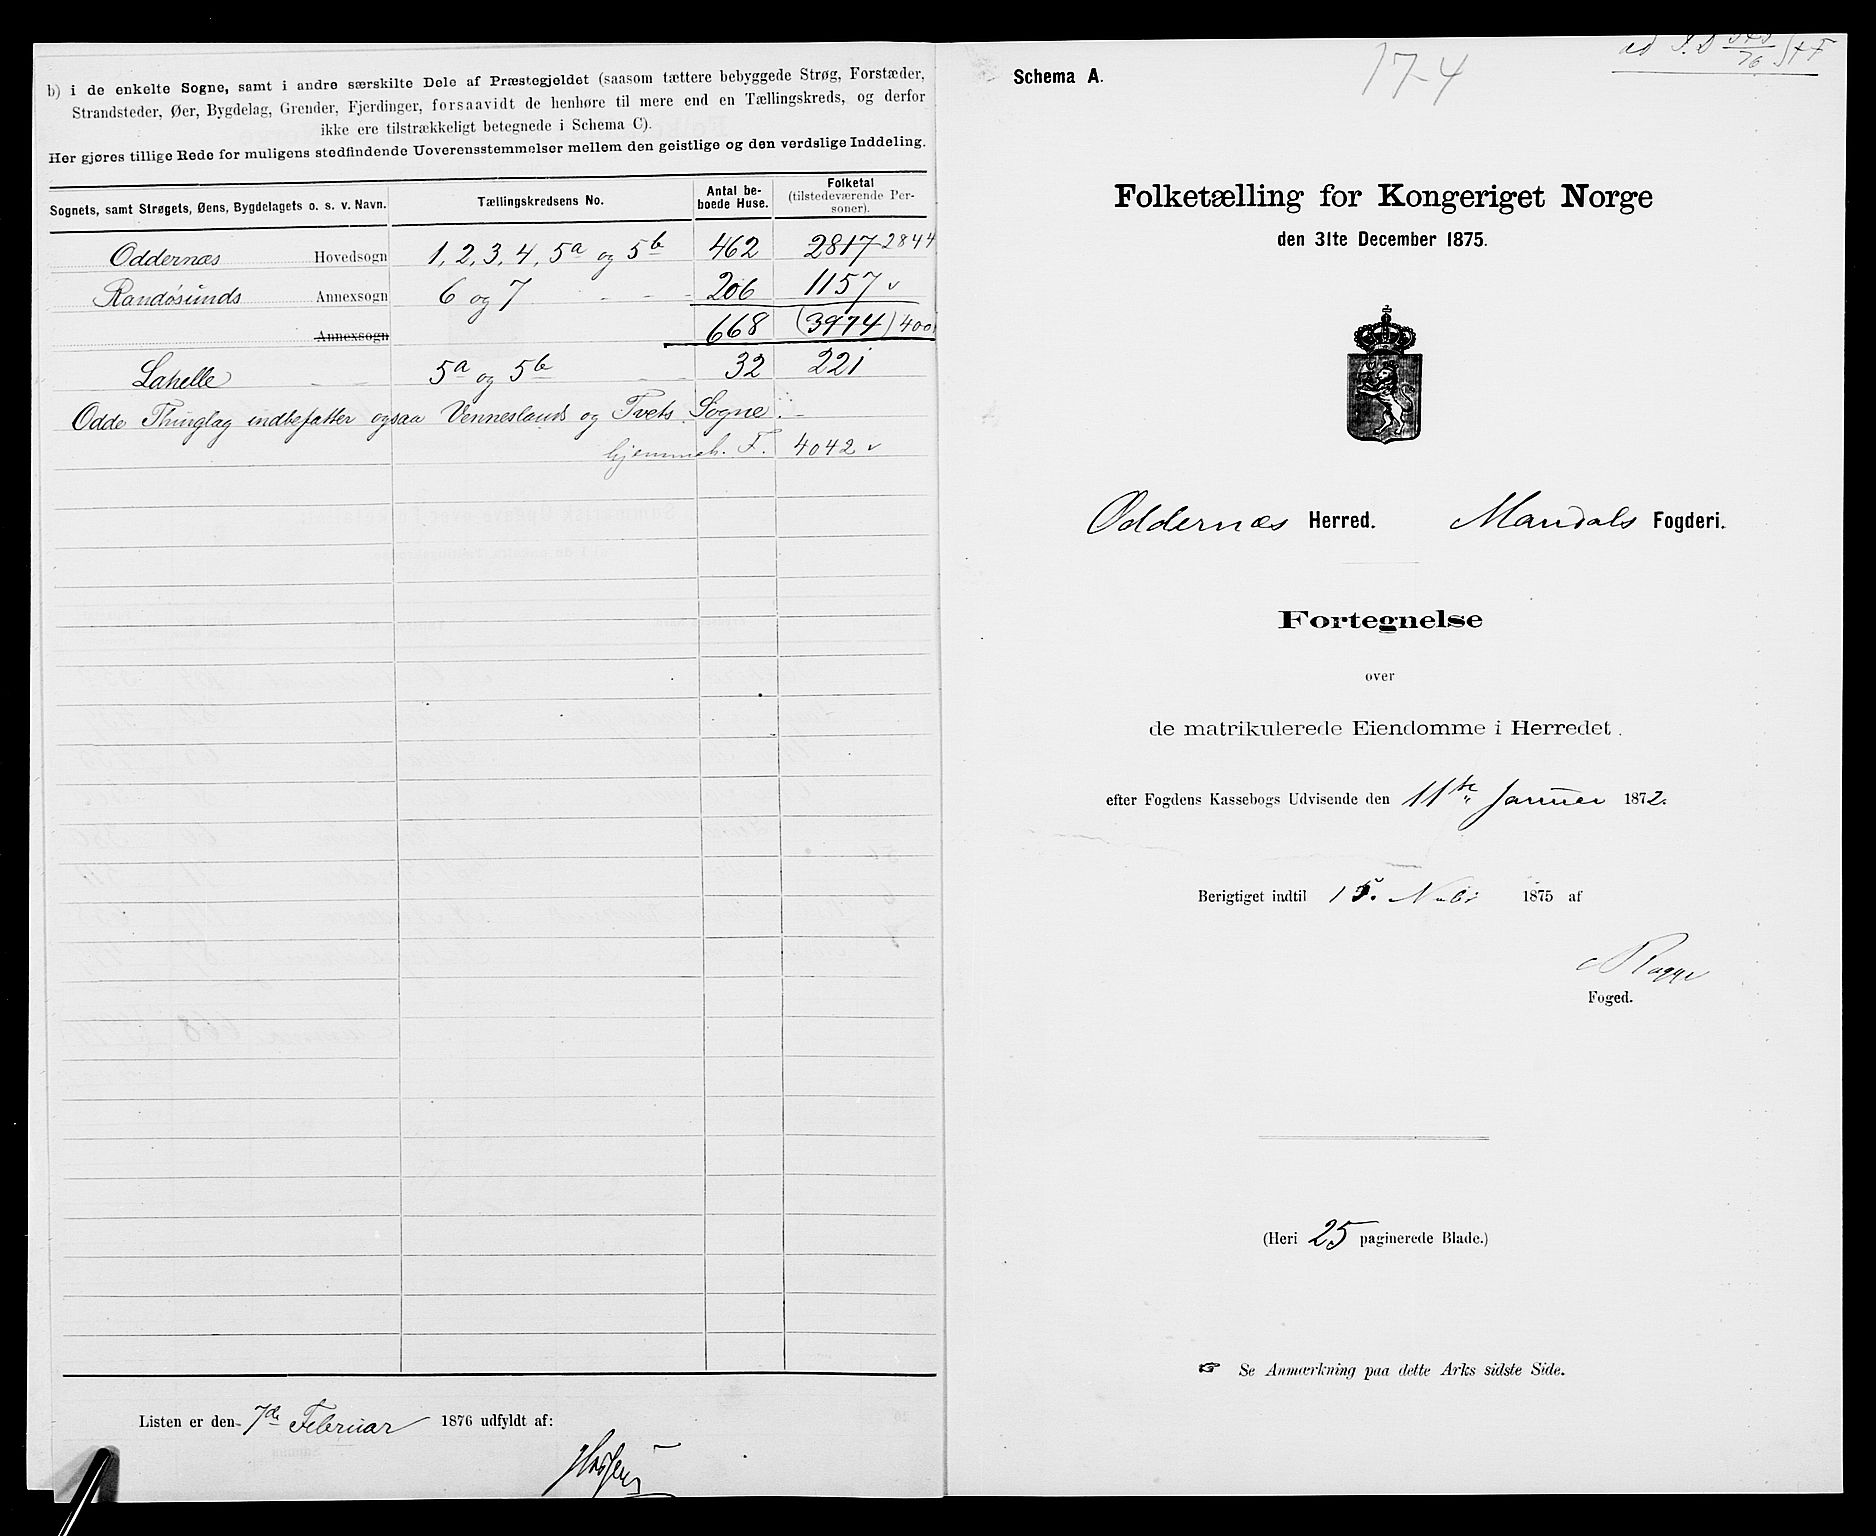 b) i de enkelte Sogne, samt i andre særskilte Dele af Præstegjeldet (saasom tættere bebyggede Strøg, Forstæder,
Strandsteder, Øer, Bygdelag, Grender, Fjerdinger, forsaavidt de henhøre til mere end en Tællingskreds, og derfor
ikke ere tilstrækkeligt betegnede i Schema C).
Her gjøres tillige Rede for muligens stedfindende Uoverensstemmelser mellem den geistlige og den verdslige Inddeling.
Sognets, samt Strøgets, Øens, Bygdelagets o. s. v. Navn. Tællingskredsens No. Antal beboede Huse. Folketal (tilstedeværende Personer).
Oddernæs Hovedsogn 1, 2, 3, 4, 5a og 5b 462 2817 2844
Randøsunds Annexsogn 6 og 7 206 1157 v
Annexsogn 668 (3974) 400
Lahelle 5a og 5b 32 221
Odde Thinglag indbefatter ogsaa Venneslands og Tvets Sogne.
hjemmeh. F. 4042 v
Listen er den 7de Februar 1876 udfyldt af:
Schema A.
17-4
ad
Folketælling for Kongeriget Norge
den 31te December 1875.
Oddernæs Herred. Mandals Fogderi.
Fortegnelse
over
de matrikulerede Eiendomme i Herredet.
efter Fogdens Kassebogs Udvisende den 11te Januar 1872.
Berigtiget indtil 15. Novbr 1875 af
Foged.
(Heri 25 paginerede Blade.)
☞ Se Anmærkning paa dette Arks sidste Side.